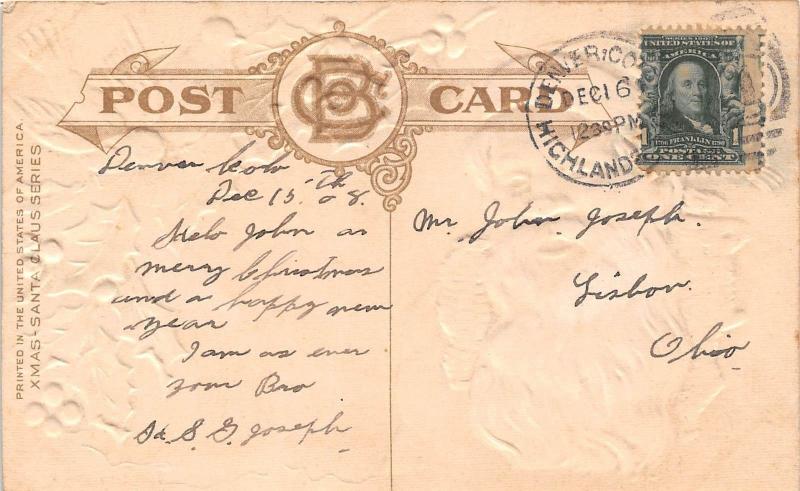 POST CARD
PRINTED IN THE UNITED STATES OF AMERICA.
XMAS-SANTA CLAUS SERIES
DENVER COLO
DEC 16
1230PM
HIGHLANDS
SERIES 1902
UNITED STATES OF AMERICA
1706 FRANKLIN 1790
POSTAGE
1 ONE CENT 1
Denver Colo
Dec 15th 08.
Helo John a
merry Christmas
and a happy new
year
I am as ever
your Bro
S. G. Joseph
Mr John Joseph.
Lisbon.
Ohio